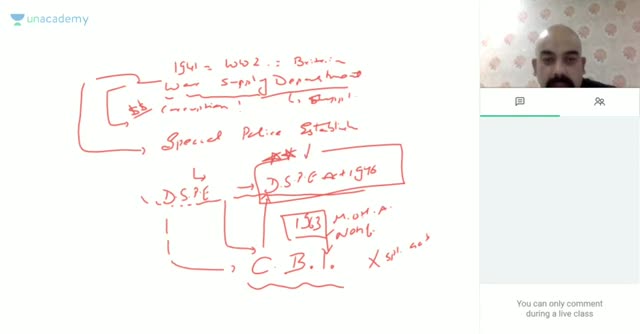 unacademy
1941 = WW2 = Britain
War Supply Department
Corruption!
Special Police Establish
D.S.P.E
D.S.P.E Act 1946
1963 M.O.H.A.
C.B.I. X
You can only comment
during a live class